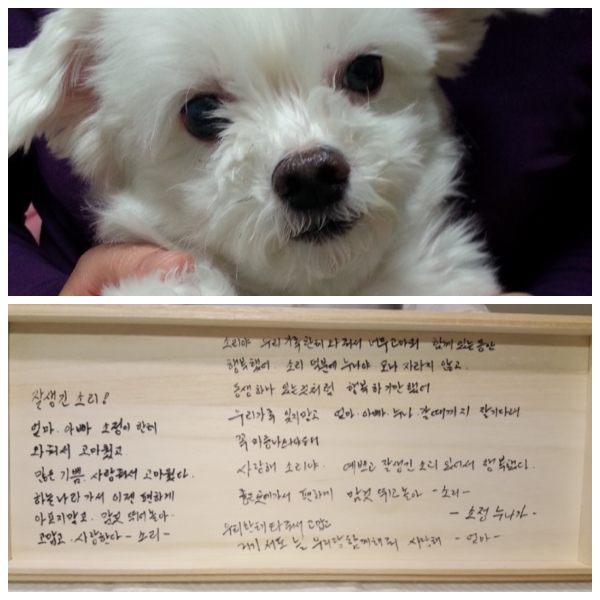 잘생긴 소리!
엄마. 아빠 소정이 한테
와줘서 고마웠고
많은 기쁨 사랑줘서 고마웠다.
하늘나라 가서 이젠 편하게
아프지말고. 맘껏 뛰어놀아.
고맙고. 사랑한다 - 소리 -
소리야 우리 가족한테 와줘서 너무 고마워 함께 있는 동안
행복했어 소리 덕분에 누나가 모나 자라지 않고.
동생하나 있는것처럼 행복하기만 했어
우리가족 잊지말고 엄마. 아빠. 누나. 갈때까지 기다려
꼭
사랑해 소리야. 예쁘고 잘생긴 소리 있어서 행복했다.
좋은곳에가서 편하게 맘껏 뛰고놀아 - 소리 -
- 소정 누나가 -
우리한테 와줘서 고맙고
우리랑 함께해줘 사랑해 - 엄마 -